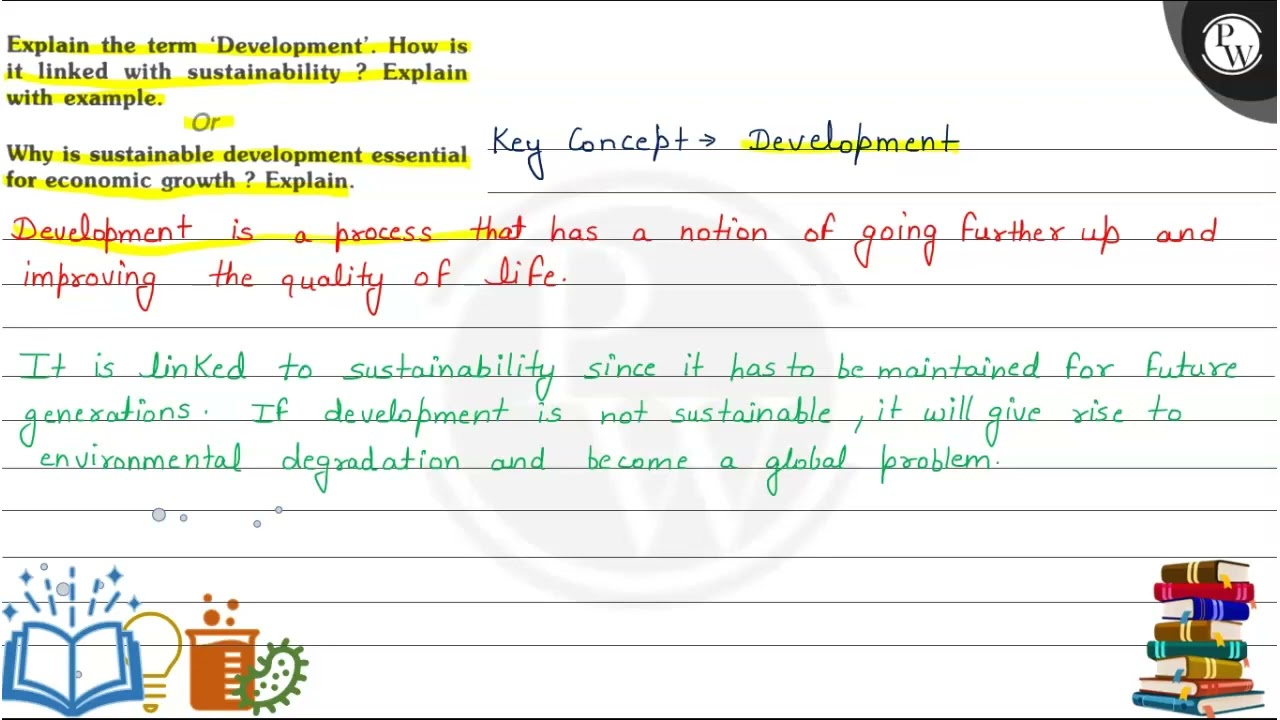 Explain the term ‘Development’. How is
it linked with sustainability ? Explain
with example.
Or
Why is sustainable development essential
for economic growth ? Explain.
PW
Key Concept → Development
Development is a process that has a notion of going further up and
improving the quality of life.
It is linked to sustainability since it has to be maintained for future
generations. If development is not sustainable, it will give rise to
environmental degradation and become a global problem.